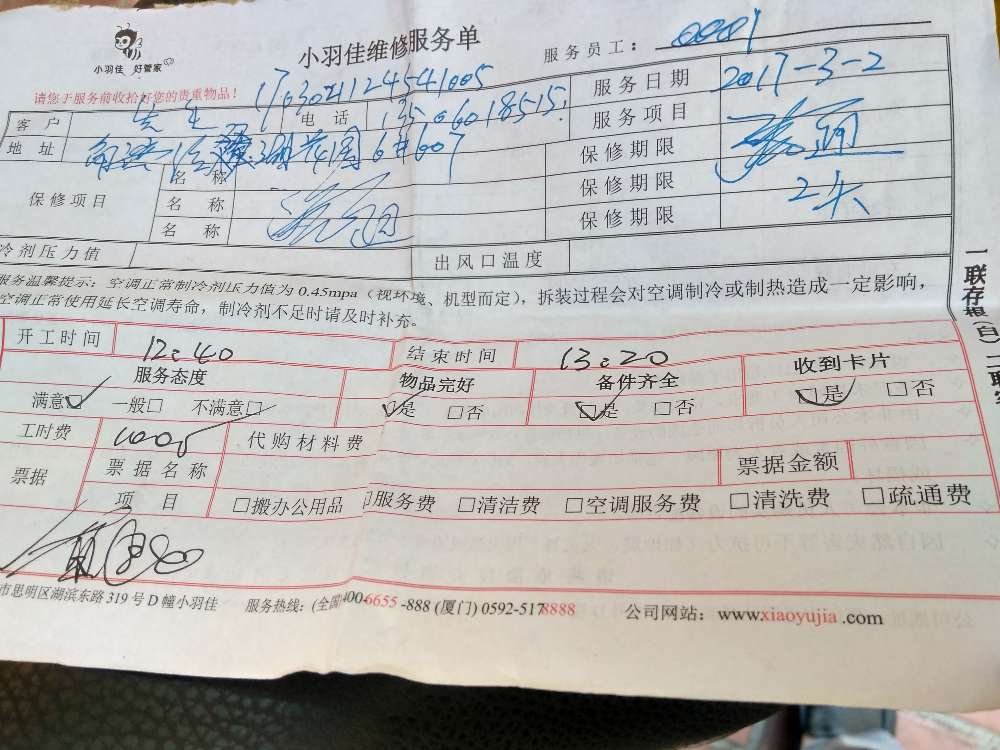 小羽佳 好管家
小羽佳维修服务单
服务员工：0081
请您于服务前收拾好您的贵重物品！
服务日期 2017-3-2
客户 先生 电话
服务项目
地址 花园 6#607
保修期限
保修项目 名称
保修期限
名称
保修期限
名称
冷剂压力值 出风口温度
服务温馨提示：空调正常制冷剂压力值为 0.45mpa（视环境、机型而定），拆装过程会对空调制冷或制热造成一定影响，
空调正常使用延长空调寿命，制冷剂不足时请及时补充。
一联存根（白）二联
开工时间 12:40 结束时间 13:20
服务态度 物品完好 备件齐全 收到卡片
满意☑ 一般□ 不满意□ ☑是 □否 ☑是 □否 ☑是 □否
工时费 代购材料费
票据 票据名称 票据金额
项目 □搬办公用品 □服务费 □清洁费 □空调服务费 □清洗费 □疏通费
市思明区湖滨东路 319 号 D 幢小羽佳 服务热线：(全国)400-6655-888 (厦门) 0592-5178888 公司网站：www.xiaoyujia.com